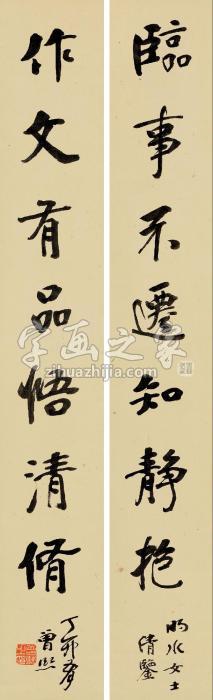 臨事不遷知靜抱
明水女士
清鑒
作文有品悟清脩
丁卯
曾熙
字画之家
zihuazhijia.com